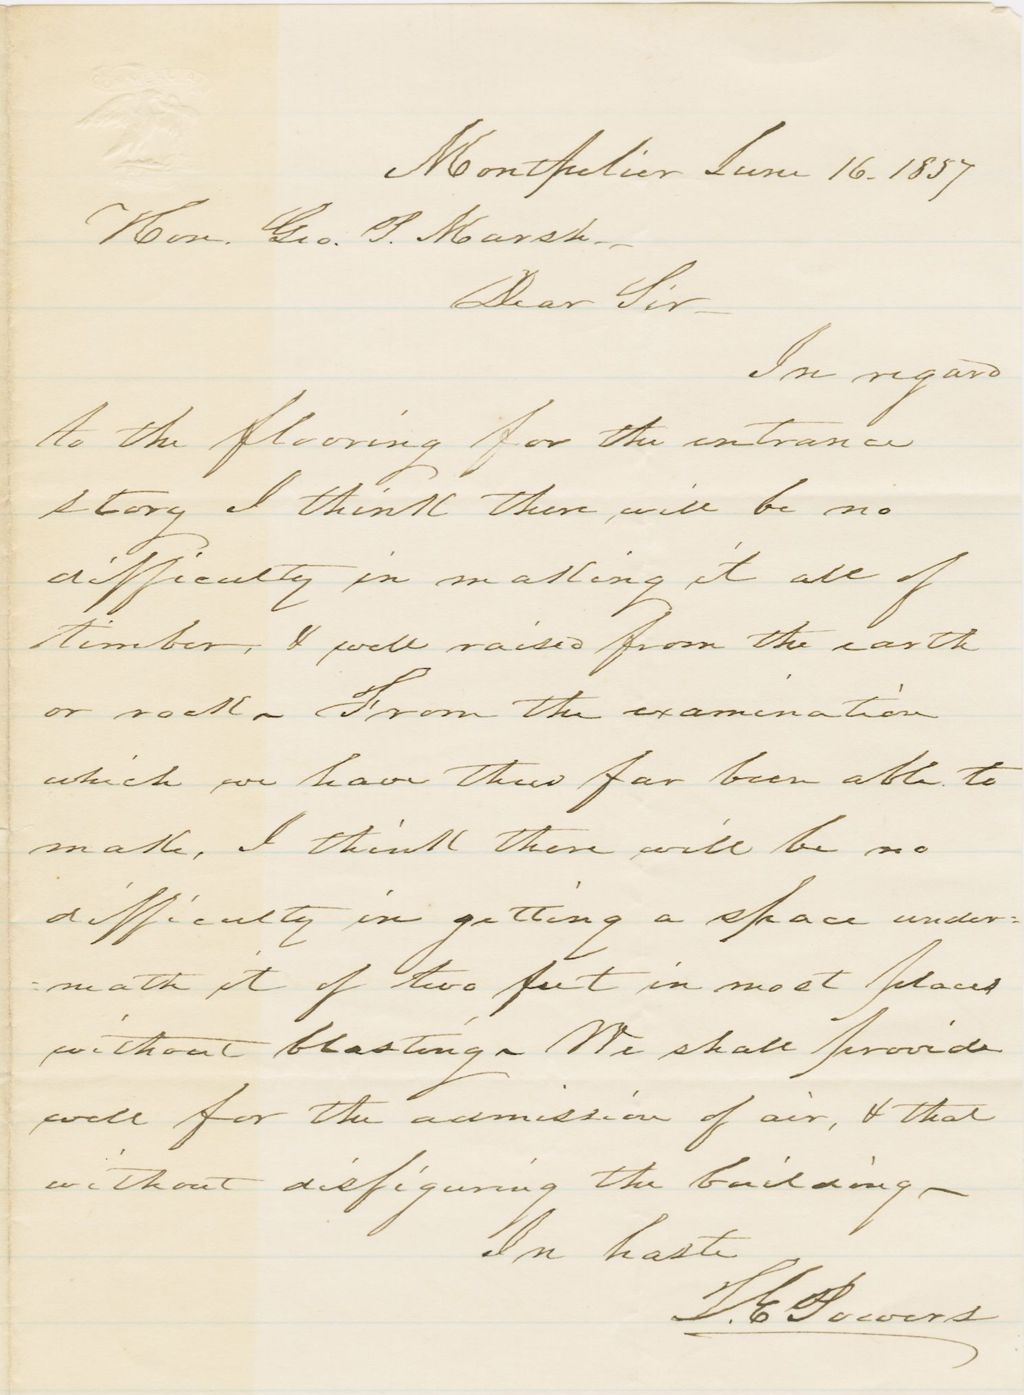 Montpelier June 16. 1857
Hon. Geo. P. Marsh -
Dear Sir -
In regard
to the flooring for the entrance
story I think there will be no
difficulty in making it all of
timber, & well raised from the earth
or rock - From the examination
which we have thus far been able to
make, I think there will be no
difficulty in getting a space under=
=neath it of two feet in most places
without blasting - We shall provide
well for the admission of air, & that
without disfiguring the building -
In haste
T. E. Powers